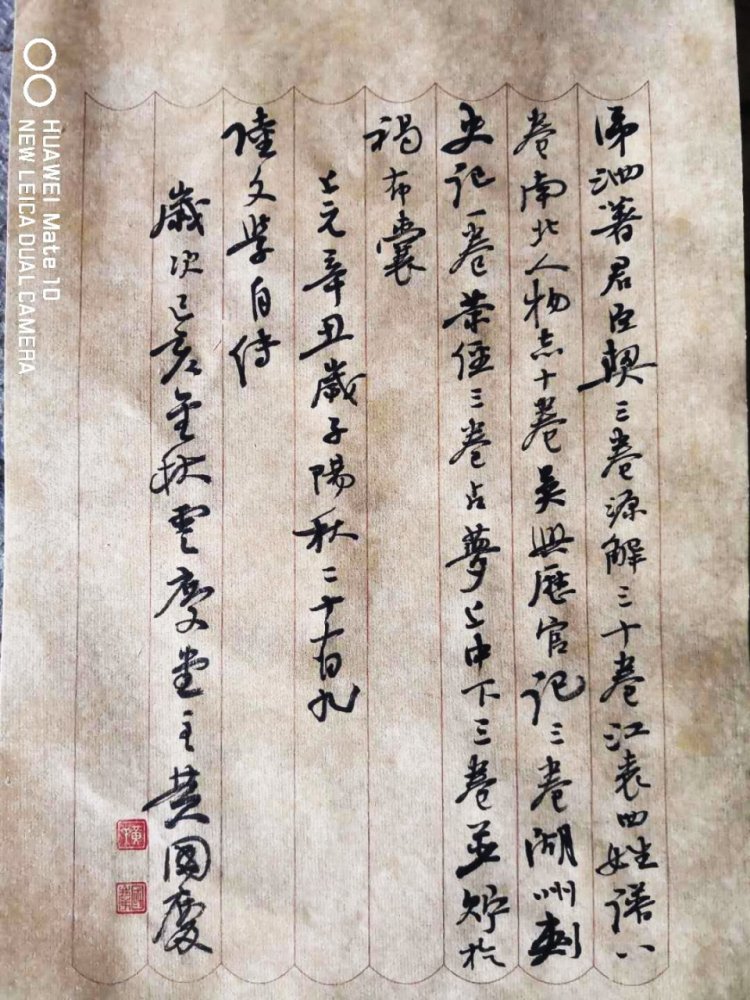 涕泗著君臣契三卷源解三十卷江表四姓譜八
卷南北人物志十卷吴興歷官記三卷湖州刺
史記一卷茶經三卷占夢上中下三卷並貯於
褐布囊
上元辛丑歲子陽秋二十有九
陸文學自傳
歲次己亥金秋雲慶堂主黄國慶
HUAWEI Mate 10
NEW LEICA DUAL CAMERA